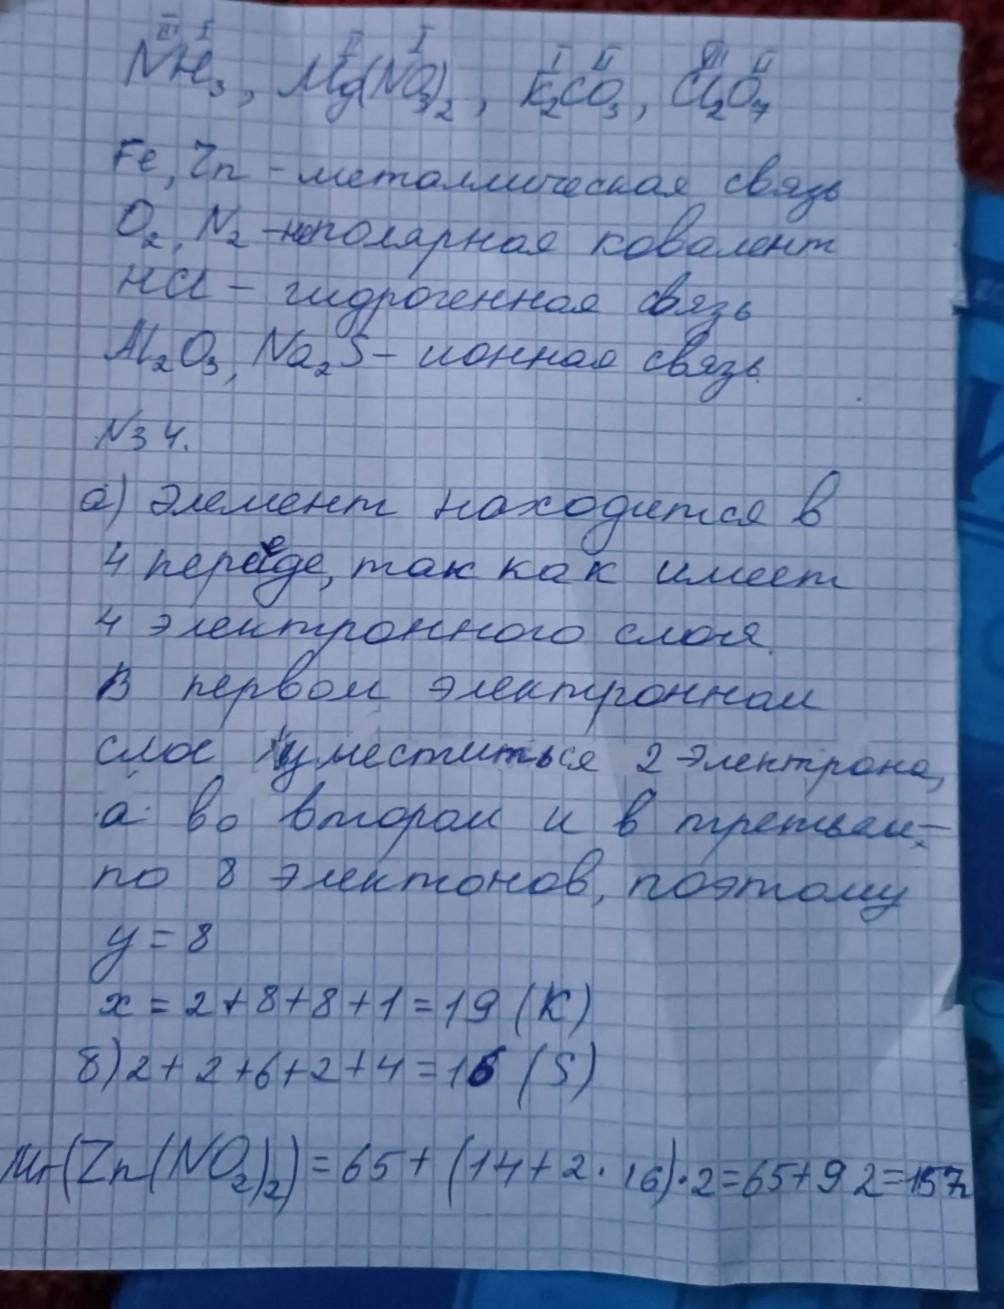 III I II I I II VII II
NH₃, Mg(NO₃)₂, K₂CO₃, Cl₂O₇
Fe, Zn - металлическая связь
O₂, N₂ - неполярная ковалент
HCl - гидрогенная связь
Al₂O₃, Na₂S - ионная связь.
N34.
а) Элемент находится в
4 перееде, так как имеет
4 электронного слоя.
В первом электронном
слое уместиться 2 электрона,
а во втором и в третьем -
по 8 электонов, поэтому
y = 8
x = 2 + 8 + 8 + 1 = 19 (K)
б) 2 + 2 + 6 + 2 + 4 = 16 (S)
Mr(Zn(NO₂)₂) = 65 + (14 + 2 · 16) · 2 = 65 + 92 = 157